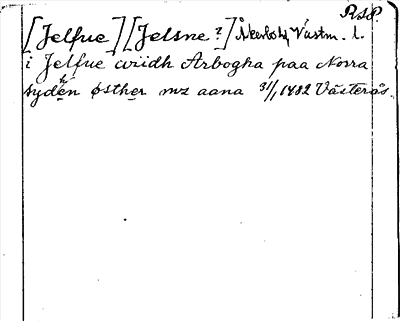 RSP.
[Jelfue] [Jelsne?] Åkerbo hd Västm. l.
i Jelfue wiidh Arbogha paa Norra
sydhen østher mz aana 31/1 1482 Västerås.